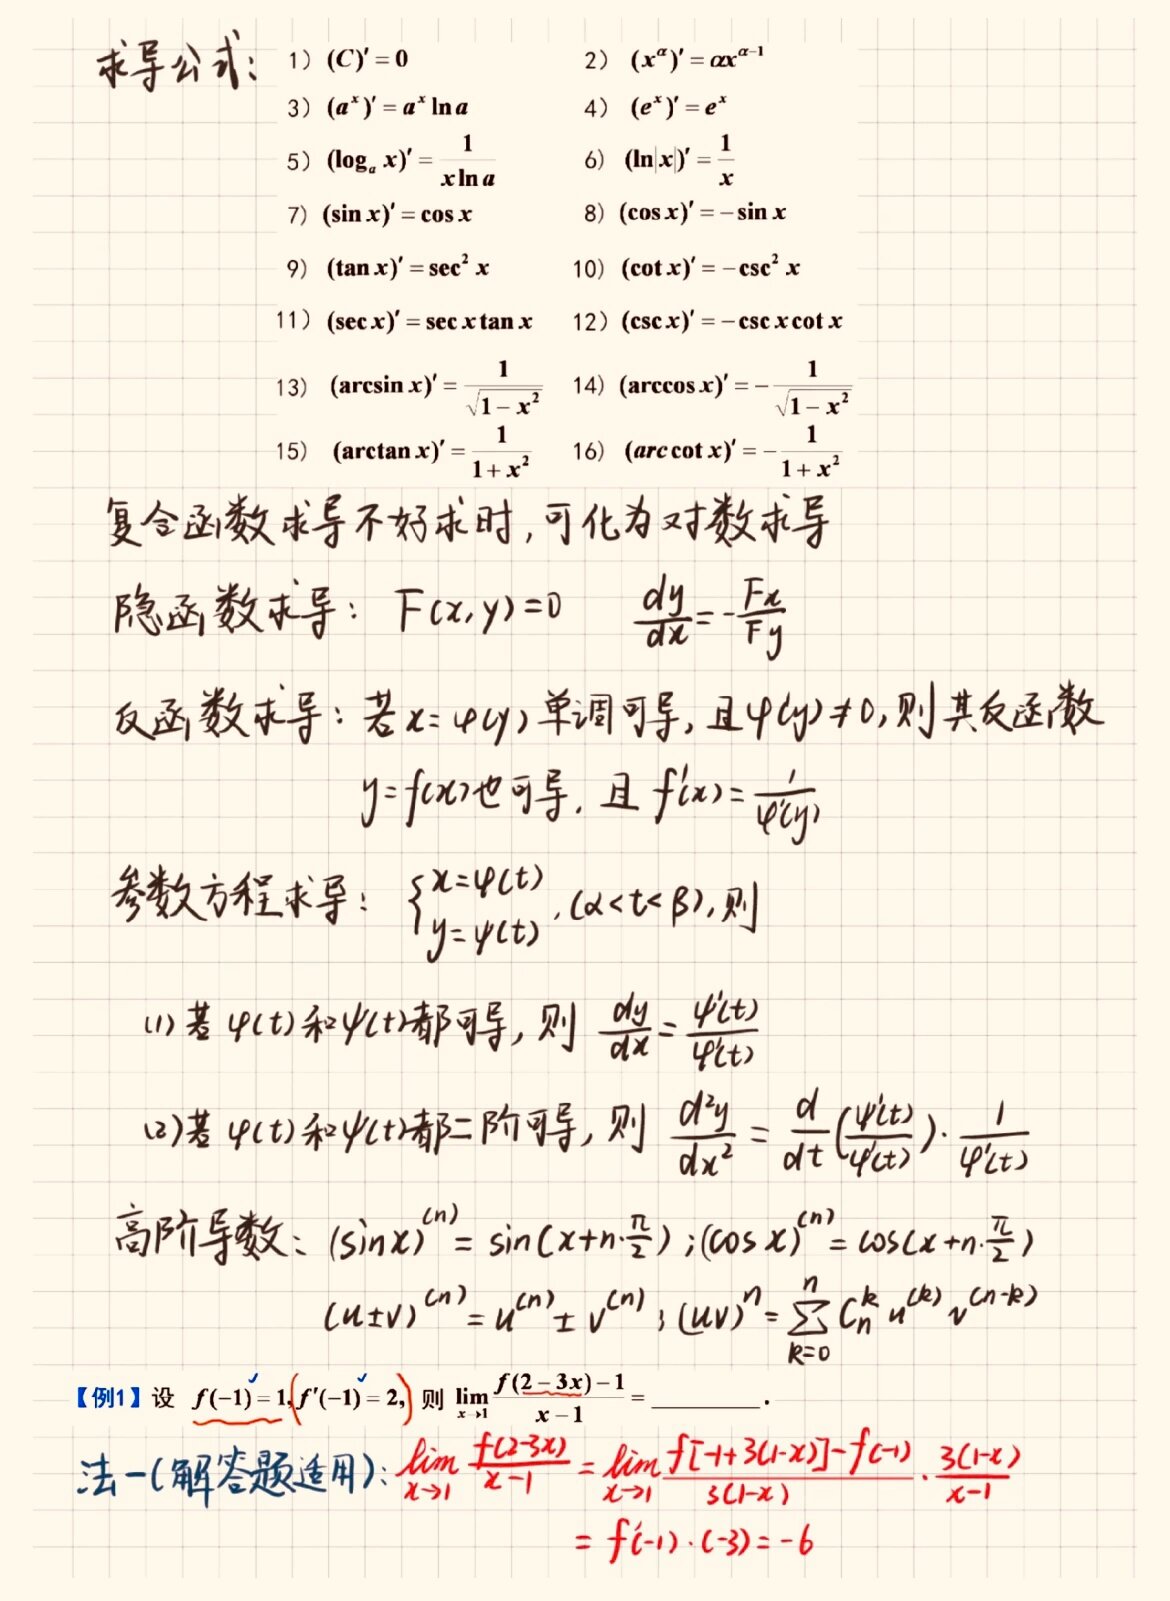 求导公式: 1) (C)′ = 0 2) (x^α)′ = αx^(α−1)
3) (a^x)′ = a^x ln a 4) (e^x)′ = e^x
5) (log_a x)′ = 1/(x ln a) 6) (ln|x|)′ = 1/x
7) (sin x)′ = cos x 8) (cos x)′ = − sin x
9) (tan x)′ = sec² x 10) (cot x)′ = −csc² x
11) (sec x)′ = sec x tan x 12) (csc x)′ = −csc x cot x
13) (arcsin x)′ = 1/√(1−x²) 14) (arccos x)′ = − 1/√(1−x²)
15) (arctan x)′ = 1/(1+x²) 16) (arc cot x)′ = − 1/(1+x²)
复合函数求导不好求时,可化为对数求导
隐函数求导: F(x,y)=0 dy/dx = −Fx/Fy
反函数求导:若x=φ(y)单调可导,且φ′(y)≠0,则其反函数
y=f(x)也可导,且f′(x)=1/φ′(y)
参数方程求导: {x=φ(t) y=ψ(t) ,(α<t<β),则
(1)若φ(t)和ψ(t)都可导,则 dy/dx = ψ′(t)/φ′(t)
(2)若φ(t)和ψ(t)都二阶可导,则 d²y/dx² = d/dt(ψ′(t)/φ′(t))·1/φ′(t)
高阶导数:(sinx)^(n)=sin(x+n·π/2);(cosx)^(n)=cos(x+n·π/2)
(u±v)^(n)=u^(n)±v^(n);(uv)^n=∑_{k=0}^{n} C_n^k u^(k) v^(n-k)
【例1】设 f(−1) = 1, f′(−1) = 2, 则 lim_{x→1} (f(2−3x)−1)/(x−1) = ________ .
法一(解答题适用): lim_{x→1} f(2-3x)/(x-1) = lim_{x→1} (f[-1+3(1-x)]-f(-1))/(3(1-x)) · 3(1-x)/(x-1)
= f′(-1)·(-3)=-6